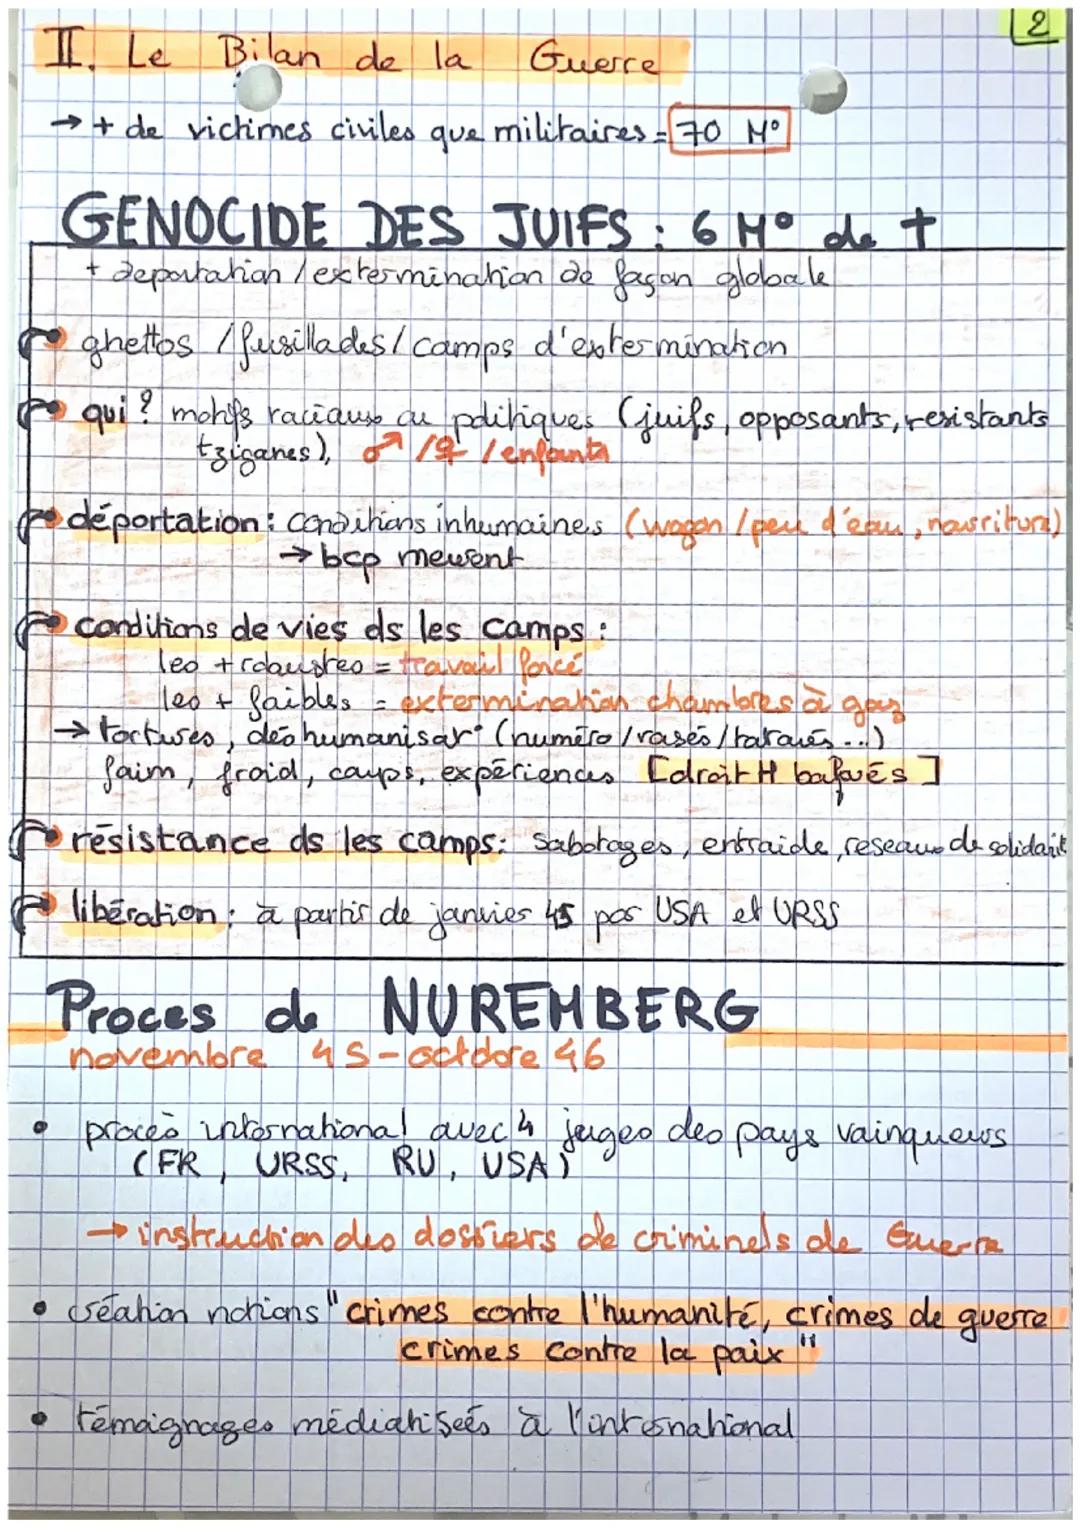 2
II. Le Bilan de la Guerre
→ + de victimes civiles que militaires = 70 M°
GENOCIDE DES JUIFS : 6 M° de +
+ deportation / extermination de façon globale
ghettos / fusillades / camps d'extermination
qui ? motifs raciaux ou politiques (juifs, opposants, resistants
tziganes), ♂ / ♀ / enfants
déportation : conditions inhumaines (wagon / peu d'eau, nourriture)
→ bcp meurent
conditions de vies ds les camps :
les + robustes = travail forcé
les + faibles = extermination chambres à gaz
→ tortures, déshumanisat° (numéro / rasés / tatoués ...)
faim, froid, coups, expériences [droit H bafoués]
résistance ds les camps : sabotages, entraide, reseaux de solidarité
libération : à partir de janvier 45 par USA et URSS
Proces de NUREMBERG
novembre 45 - octobre 46
• procès international avec 4 juges des pays vainqueurs
(FR, URSS, RU, USA)
→ instruction des dossiers de criminels de Guerre
• création notions "crimes contre l'humanité, crimes de guerre
crimes contre la paix"
• témoignages médiatisés à l'international